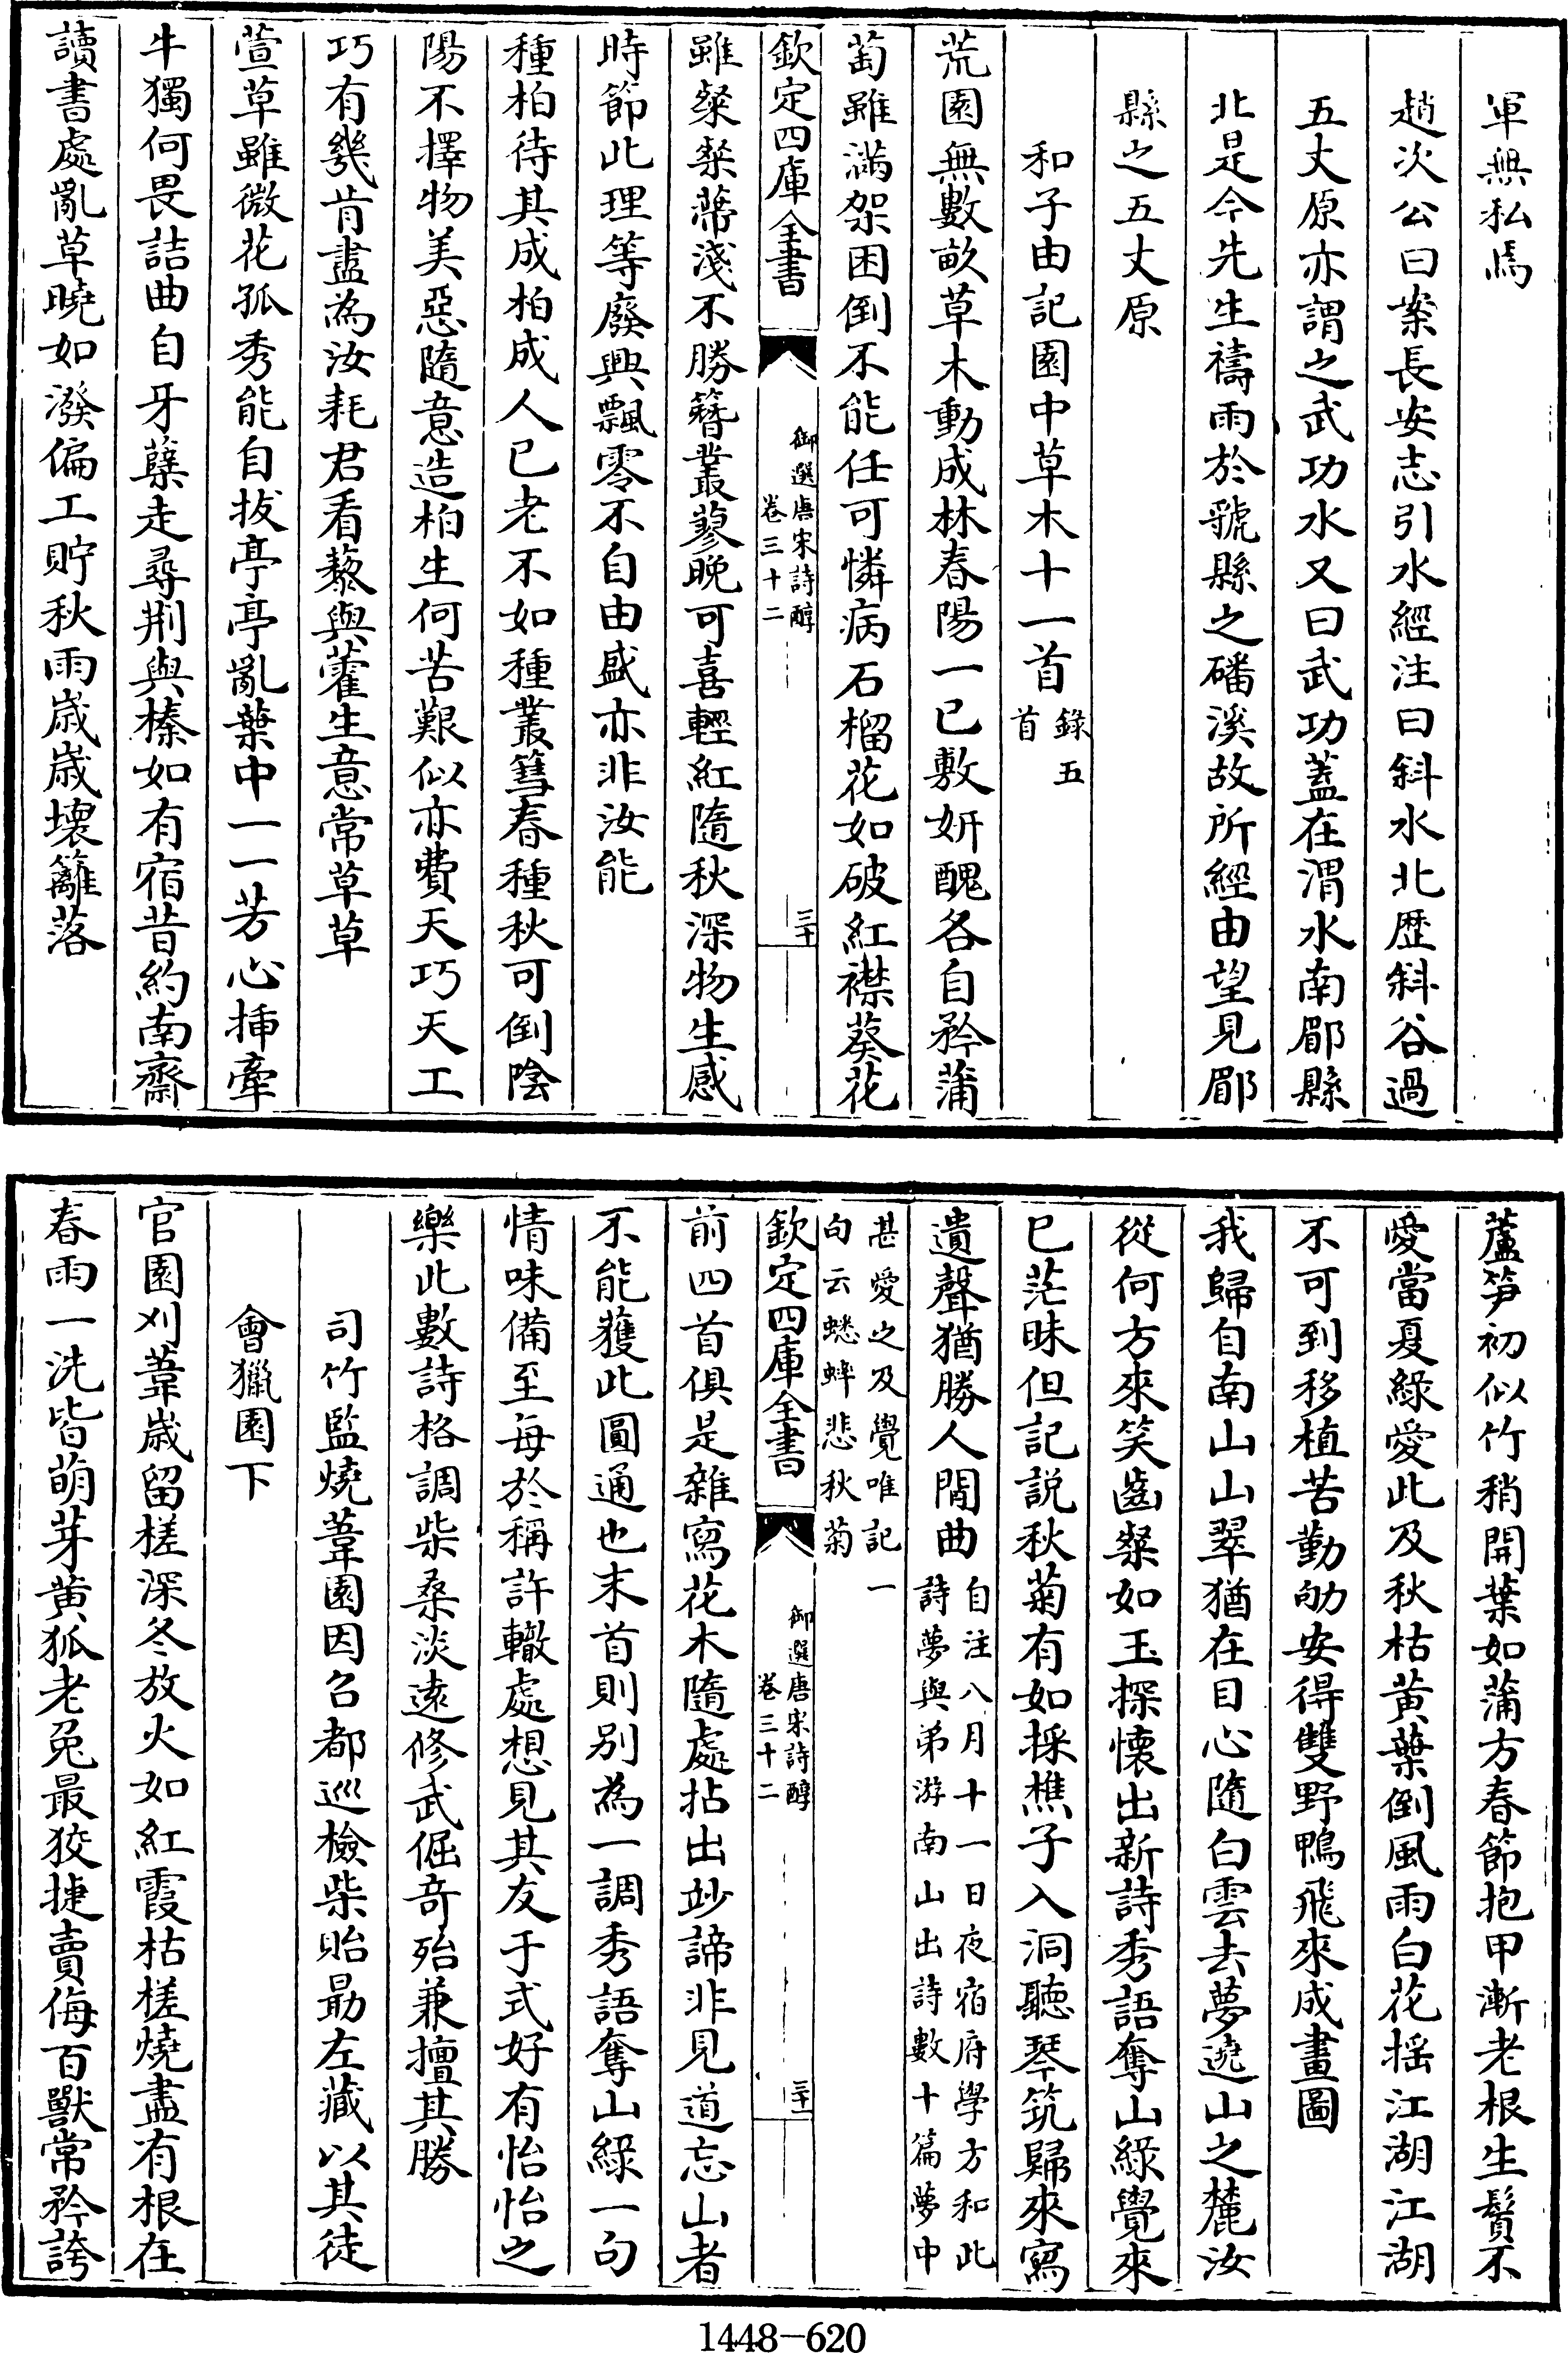 軍無私焉
趙次公曰案長安志引水經注曰斜水北歴斜谷過
五丈原亦謂之武功水又曰武功蓋在渭水南郿縣
北是今先生禱雨於虢縣之磻溪故所經由望見郿
縣之五丈原
和子由記園中草木十一首錄五首
荒園無數畝草木動成林春陽一已敷妍醜各自矜蒲
萄雖滿架困倒不能任可憐病石榴花如破紅襟葵花
欽定四庫全書
御選唐宋詩醇
卷三十二
三十
雖粲粲蔕淺不勝簪叢蓼晚可喜輕紅隨秋深物生感
時節此理等廢興飄零不自由盛亦非汝能
種柏待其成柏成人已老不如種叢篲春種秋可倒陰
陽不擇物美惡隨意造柏生何苦艱似亦費天巧天工
巧有幾肯盡為汝耗君看藜與藿生意常草草
萱草雖微花孤秀能自拔亭亭亂葉中一一芳心揷牽
牛獨何畏詰曲自牙蘖走尋荆與榛如有宿昔約南齋
讀書處亂草曉如潑偏工貯秋雨歳歳壊籬落
蘆笋初似竹稍開葉如蒲方春節抱甲漸老根生鬚不
愛當夏綠愛此及秋枯黃葉倒風雨白花搖江湖江湖
不可到移植苦勤劬安得雙野鴨飛來成畫圖
我歸自南山山翠猶在目心隨白雲去夢遶山之麓汝
從何方來笑齒粲如玉探懐出新詩秀語奪山綠覺來
已茫昧但記説秋菊有如採樵子入洞聽琴筑歸來寫
遺聲猶勝人間曲自注八月十一日夜宿府學方和此
詩夢與弟游南山出詩數十篇夢中
甚愛之及覺唯記一
句云蟋蟀悲秋菊
欽定四庫全書
御選唐宋詩醇
卷三十二
三十一
前四首俱是雜寫花木隨處拈出妙諦非見道忘山者
不能獲此圓通也末首則别為一調秀語奪山綠一句
情味備至每於稱許轍處想見其友于式好有怡怡之
樂此數詩格調柴桑淡逺修武倔奇殆兼擅其勝
司竹監燒葦園因召都巡檢柴貽勗左藏以其徒
會獵園下
官園刈葦歳留槎深冬放火如紅霞枯槎燒盡有根在
春雨一洗皆萌芽黃狐老兔最狡捷賣侮百獸常矜誇
1448-620